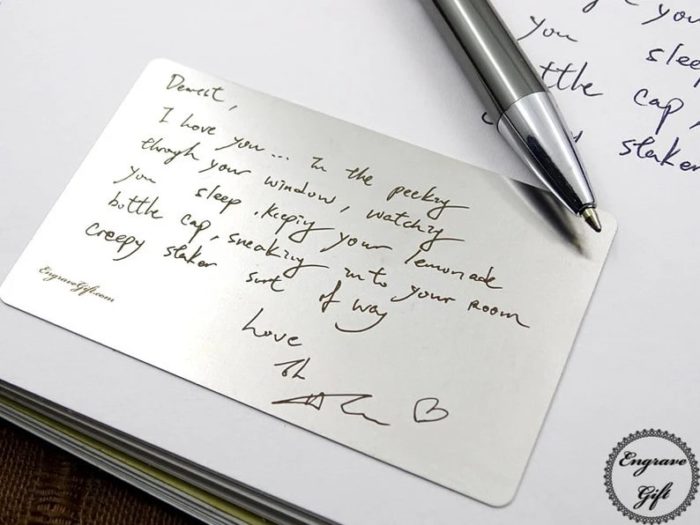 Dearest,
I love you... In the peeking
through your window, watching
you sleep, keeping your lemonade
bottle cap, sneaking into your room
creepy staker sort of way
Love
EngraveGift.com
you
you sleep
ttle cap,
staker
Engrave
Gift